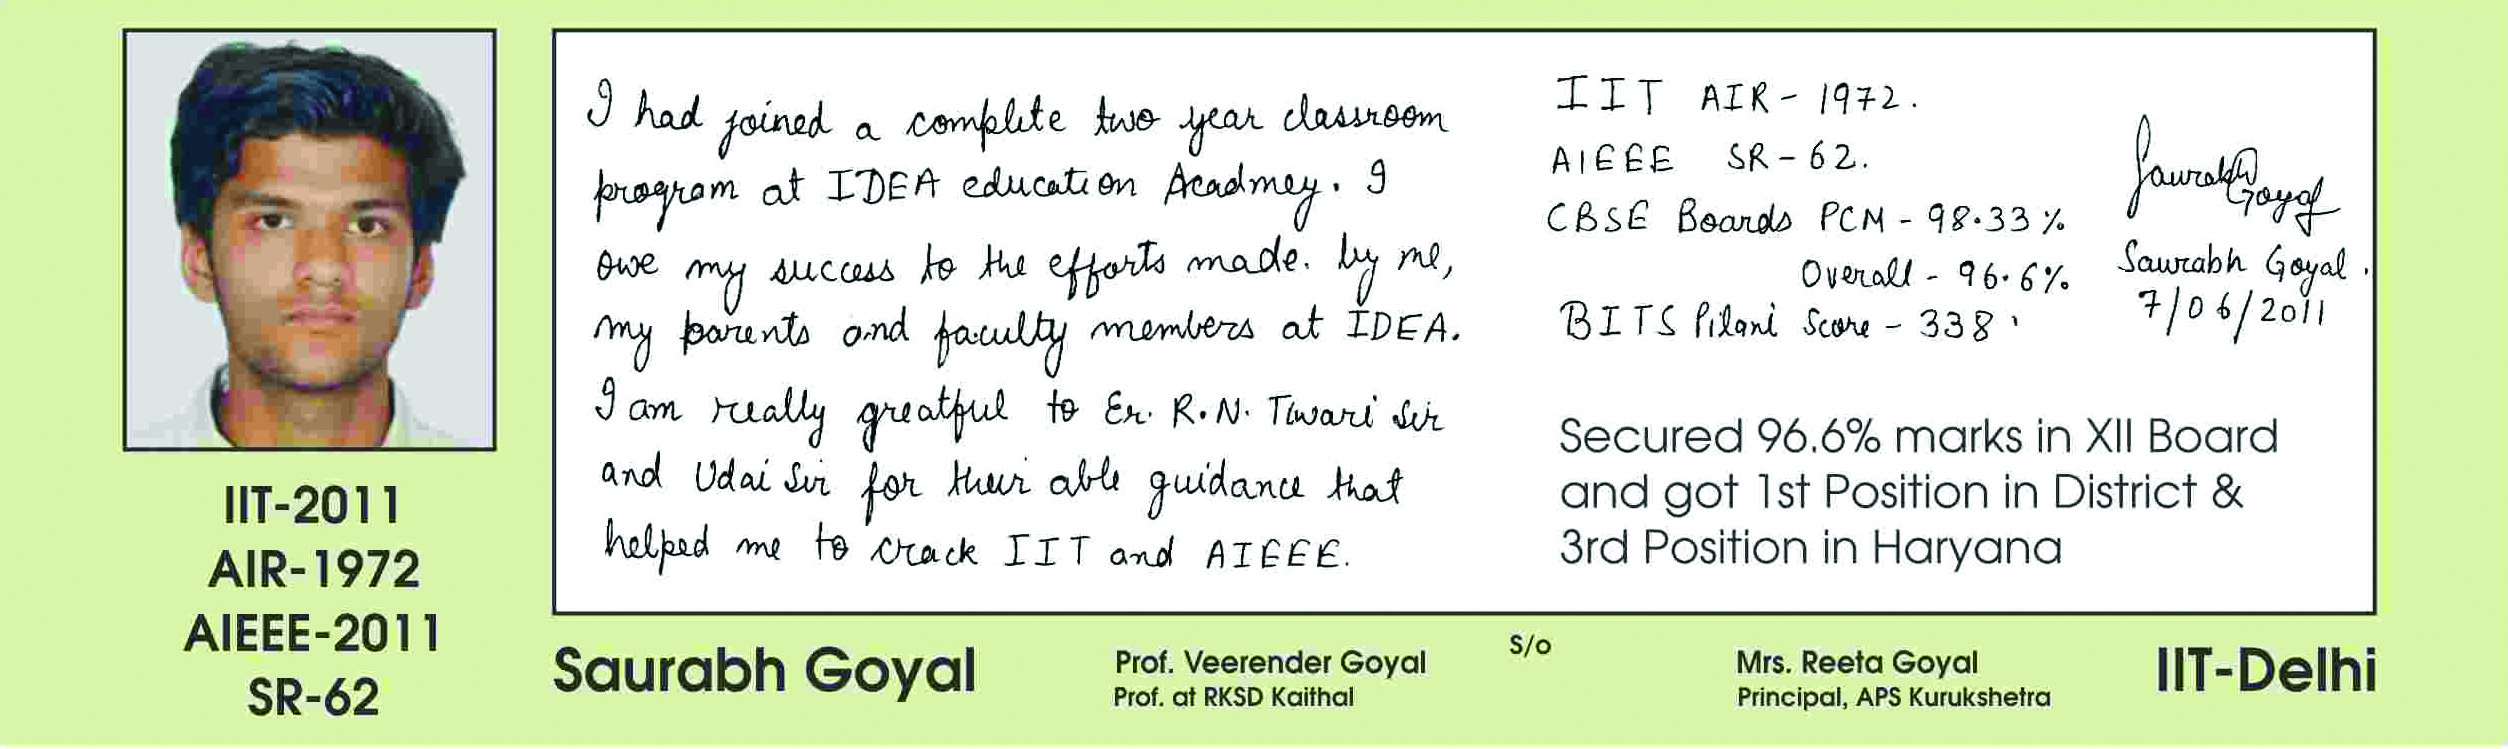 I had joined a complete two year classroom
program at IDEA education Acadmey. I
owe my success to the efforts made. by me,
my parents and faculty members at IDEA.
I am really greatful to Er. R.N. Tiwari Sir
and Udai Sir for their able guidance that
helped me to crack IIT and AIEEE.
IIT AIR - 1972.
AIEEE SR - 62.
CBSE Boards PCM - 98.33%
Overall - 96.6%
BITS Pilani Score - 338
Saurabh
Goyal
Saurabh Goyal.
7/06/2011
Secured 96.6% marks in XII Board
and got 1st Position in District &
3rd Position in Haryana
IIT-2011
AIR-1972
AIEEE-2011
SR-62
Saurabh Goyal
S/o
Prof. Veerender Goyal
Prof. at RKSD Kaithal
Mrs. Reeta Goyal
Principal, APS Kurukshetra
IIT-Delhi